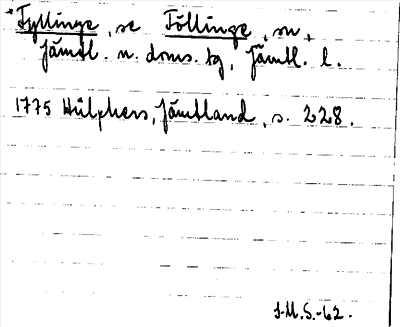 *Fyllinge, se Föllinge, sn,
Jämtl. n. doms. tg, Jämtl. l.
1775 Hülphers, Jämtland, s. 228.
J.M.S.-62.